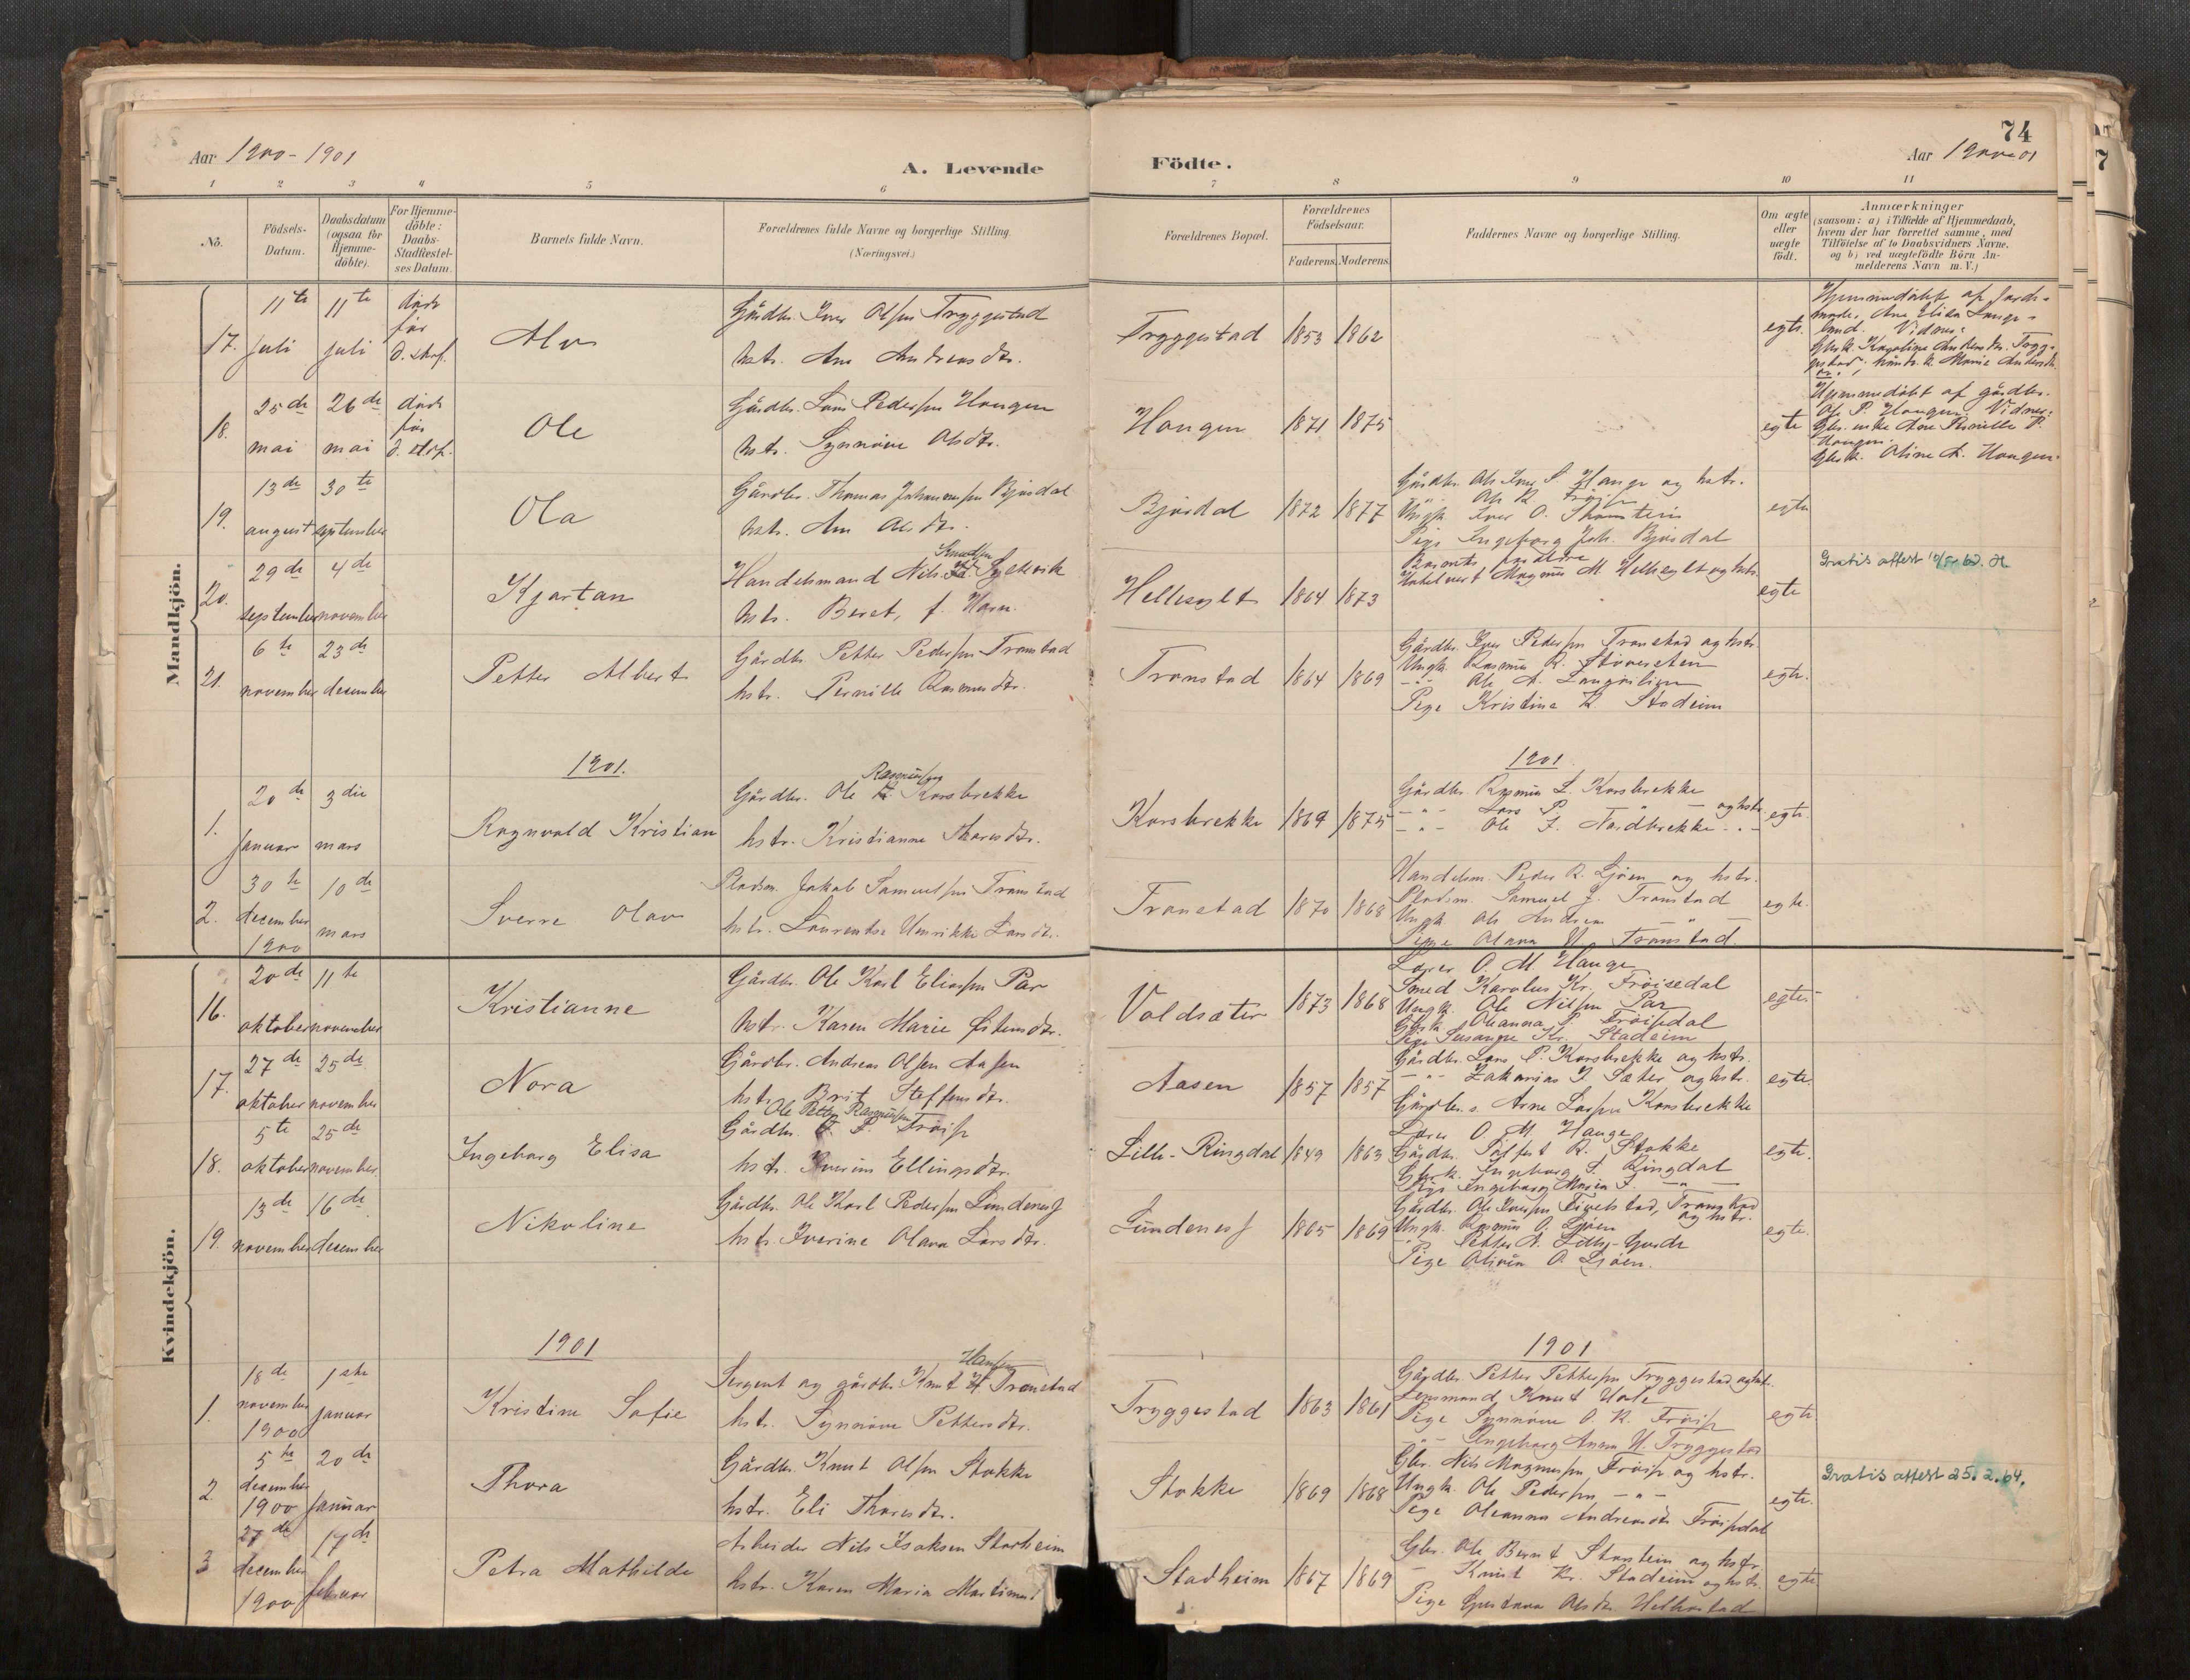 74
Aar 1900-1901
A. Levende
Födte.
Aar 1900-01
1 2 3 4 5 6 7 8 9 10 11
No.
Födsels-Datum.
Daabsdatum (ogsaa for Hjemme-döbte).
For Hjemme-döbte: Daabs-Stadfæstel-ses Datum.
Barnets fulde Navn.
Forældrenes fulde Navne og borgerlige Stilling.
(Næringsvei.)
Forældrenes Bopæl.
Forældrenes Födselsaar.
Faderens. Moderens.
Faddernes Navne og borgerlige Stilling.
Om ægte eller uægte födt.
Anmærkninger
(saasom: a) i Tilfælde af Hjemmedaab, hvem der har forrettet samme, med Tilföielse af to Daabsvidners Navne, og b) ved uægtefödte Börn An-melderens Navn m. V.)
Mandkjön.
17. 11te juli 11te juli døde før d. stf. Alv
Gårdbr. Iver Olsen Tryggestad
hstr. Ane Andreasdtr.
Tryggestad 1853 1862 egte.
Hjemmedøbt af Jord-
moder Ane Elisa Lange-
land. Vidner:
18. 25de mai 26de mai døde før d. stf. Ole
Gårdbr. Lars Pedersen Haugen
hstr. Synnøve Olsdtr.
Haugen 1871 1875 egte
Hjemmedøbt af gårdbr.
Ole P. Haugen. Vidner:
Gbr. enke Ane Pernille P.
Haugen.
Gbrk. Oline A. Haugen.
19. 13de august 30te september Ola
Gårdbr. Thomas Johannessen Bjørdal
hstr. Ane Olsdtr.
Bjørdal 1872 1877 egte
Pige Ingeborg Joh. Bjørdal
20. 29de september 4de november Kjartan
Knudsen
Handelsmand Nils Sylevik
hstr. Beret, f. Horn.
Hellesylt 1864 1873
Barnets forældre
Hotelvert Magnus M. Hellesylt og hstr.
egte
Gratis attest
21. 6te november 23de december Petter Albert
Gårdbr. Petter Pedersen Tronstad
hstr. Pernille Rasmusdtr.
Tronstad 1864 1869
Gårdbr. Iver Pedersen Tronstad og hstr.
Ungk. Rasmus R. Støvereten
-"- Ole A. Langvlien
Pige Kristine K. Stadeim
egte.
1901.
1901
1. 20de januar 3die mars Ragnvald Kristian
Rasmussen
Gårdbr. Ole Korsbrekke
hstr. Kristianne Thoresdtr.
Korsbrekke 1869 1875
Gårdbr. Rasmus L. Korsbrekke
-"- Lars P. -"- og hstr.
-"- Ole J. Nordbrekke -"-
egte.
2. 30te december 1900 10de mars Sverre Olav
Pladsm. Jakob Samuelsen Tronstad
hstr. Laurentse Henrikke Larsdtr.
Tronstad 1870 1868
Handelsm. Peder R. Ljøen og hstr.
Pladsm. Samuel J. Tronstad
Ungk. Ole Andreas -"-
Pige Olava N. Tronstad.
egte.
Kvindekjön.
16. 20de oktober 11te november Kristianne
Gårdbr. Ole Karl Eliassen Par
hstr. Karen Marie Østensdtr.
Voldsæter 1873 1868
Lærer O. M. Hauge
Smed Karolus Kr. Frøisedal
Ungk. Ole Nilsen Par
Gbrk. Oleanna P. Frøisdal
Pige Susanne Kr. Stadeim
egte.
17. 27de oktober 25de november Nora
Gårdbr. Andreas Olsen Aasen
hstr. Brit Steffensdtr.
Aasen 1857 1857
Gårdbr. Lars P. Korsbrekke og hstr.
-"- Zakarias J. Sæter og hstr.
Gårdbr. s. Arne Larsen Korsbrekke
egte.
18. 5te oktober 25de november Ingeborg Elisa
Ole Petter Rasmussen
Gårdbr. O. P. Frøise
hstr. Iverine Ellingsdtr.
Lille-Ringdal 1849 1863
Lærer O. M. Hauge
Gårdbr. Sølfest R. Stokke
Gbrk. Ingeborg S. Ringdal
Pige Ingeborg Maria J. -"-
egte.
19. 13de november 16de december Nikoline
Gårdbr. Ole Karl Pedersen Lundenes
hstr. Iverine Olava Larsdtr.
Lundenes 1865 1869
Gårdbr. Ole Iversen Tivelstad, Tronstad
og hstr.
Ungk. Rasmus O. Ljøen
-"- Petter A. Lille-Gjerde
Pige Olivia O. Ljøen.
egte.
1901
1901
1. 18de november 1900 1ste januar Kristine Sofie
Hansen
Sergent og gårdbr. Knut H. Tronstad
hstr. Synnøve Pettersdtr.
Tryggestad 1863 1861
Gårdbr. Petter Pettersen Tryggestad og hst.
Lensmand Knut Hole
Pige Synnøve O. K. Frøise
-"- Ingeborg Anna H. Tryggestad
egte
2. 5te december 1900 20de januar Thora
Gårdbr. Knut Olsen Stokke
hstr. Eli Thoresdtr.
Stokke 1869 1868
Gbr. Nils Magnussen Frøise og hstr.
Ungk. Ole Pedersen -"-
Pige Oleanna Andreasdtr. Frøisdal
egte.
Gratis attest 25.2.64.
3 27de december 1900 17de februar Petra Mathilde
Arbeider Nils Isaksen Stadheim
hstr. Karen Maria Martinusd
Stadheim 1867 1869
Gbr. Ole Bernt Storstein og hstr.
- Knut Kr. Stadeim og hstr.
Pige Gustava Olsdtr. Hellestad
egte